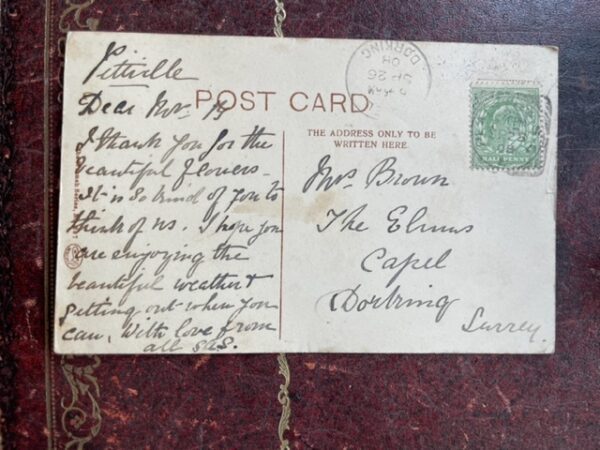 Pittville
Dear Mrs. B
I thank you for the
beautiful flowers -
it is so kind of you to
think of us. I hope you
are enjoying the
beautiful weather &
getting out when you
can, With love from
all
POST CARD
THE ADDRESS ONLY TO BE
WRITTEN HERE.
Mrs Brown
The Elms
Capel
Dorking
Surrey.
DORKING
26
HALFPENNY